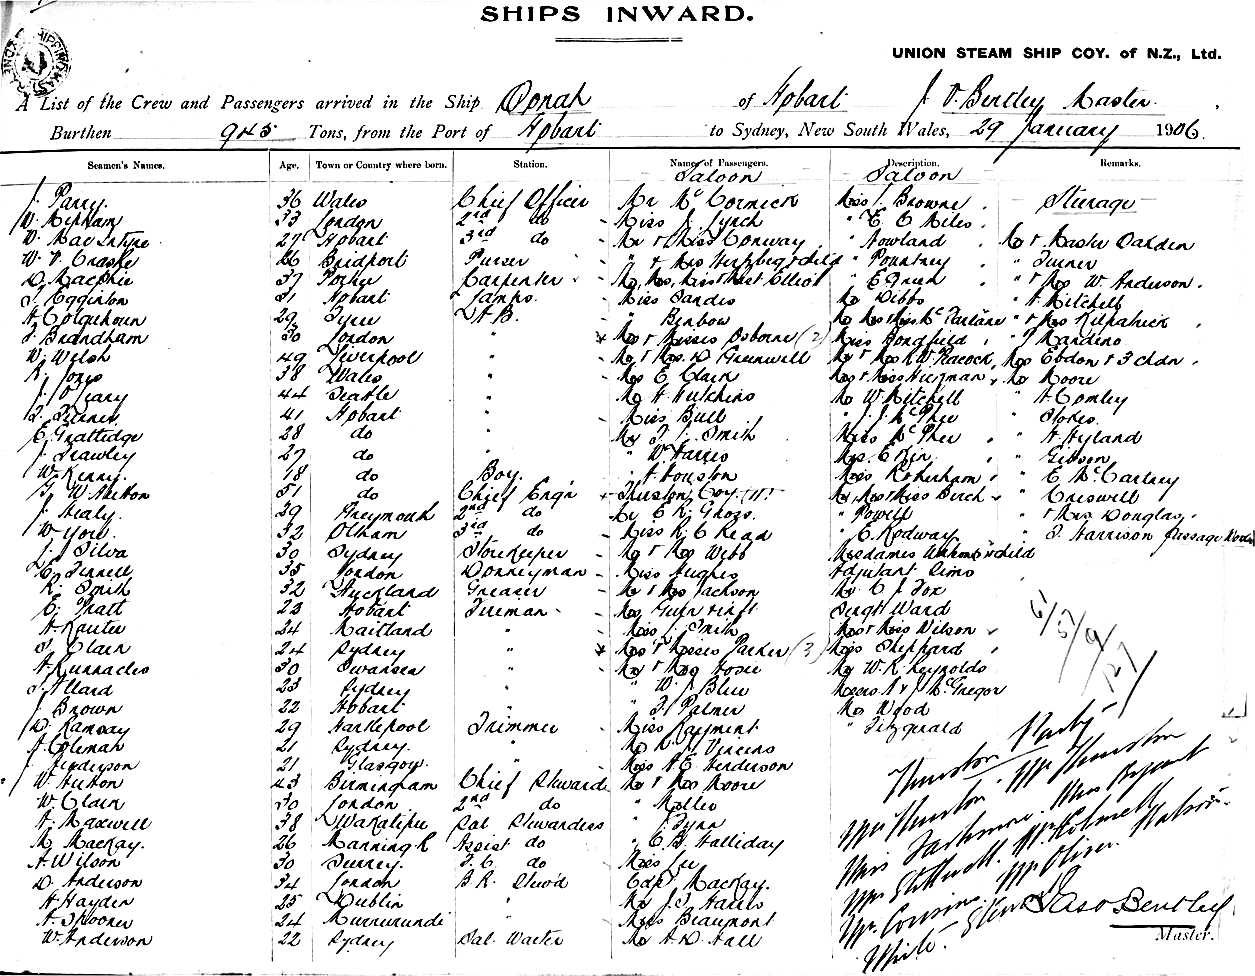 SHIPS INWARD.
UNION STEAM SHIP COY. of N.Z., Ltd.
A List of the Crew and Passengers arrived in the Ship Oonah of Hobart J. V. Bentley Master.
Burthen 945 Tons, from the Port of Hobart to Sydney, New South Wales, 29 January 1906.
Seamen's Names. Age. Town or Country where born. Station. Names of Passengers. Description. Remarks.
Saloon Saloon
J. Parry. 36 Wales Chief Officer Mr McCormick Miss J. Browne Steerage
W. Mepham 33 London 2nd do Miss J. Lynch " E E Miles
W. MacIntyre 27 Hobart 3rd do Mr & Miss Conway " Nowland Mr & Master Darden
26 Bridport Purser " & Mrs & child " Pountney " Turner
D. MacPhee 37 Carpenter Mr, Mrs, Miss & Mast Elliot " E Green " & Mrs W. Anderson
Egginton 31 Hobart Lamps. Miss Sandes Mr Dibbs " A Mitchell
A Colquhoun 29 Tyne A.B. " Benbow Mr Mrs & Miss McFarlane " & Mrs Kilpatrick
Brandham 30 London " Mrs & Misses Osborne (2) Miss Bondfield " Mandeno
W. Welsh 49 Liverpool " Mr & Mrs D Greenwell Mr & Mrs R W Peacock Mrs Ebdon & 3 chdn
R. Jones 38 Wales " Mrs E Clark Mrs & Miss Mr Moore
J. O'Leary 44 Seattle " Mr H Hutchins Mr W Mitchell " A Comley
Turner 41 Hobart " Miss Bull " J. J. McPhee " Stokes
E. Grattidge 28 do " Mr F. J. Smith Miss McPhee " H Hyland
J. Frawley 27 do " " W Harris Mrs. E " Gibson
W. Kenny. 18 do Boy " A Houston Miss E McCartney
W Hutton 51 do Chief Engr Thurston Coy (11) Mr, Mrs & Miss Birch " Creswell
J. Healy. 29 Greymouth 2nd do Mr E R. Ghozs " Powell " & Mrs Douglas
W York. 32 Oldham 3rd do Miss R. C Read " E. Rodway " J. Harrison Passage Worker
J. Silva 30 Sydney Storekeeper Mr & Mrs Webb Mesdames & child
E. Fennell 35 London Donkeyman Miss Hughes Adjutant Sims
R. Smith 32 Auckland Greaser Mr & Mrs Jackson Mr C J Fox
E. Pratt 23 Hobart Fireman Mrs & inft Sergt Ward
A. 34 Maitland " Miss J Smith Mrs & Miss Wilson
Clark 24 Sydney " Mrs & Misses Parker (3) Miss Shephard
A. Runnacles 30 Swansea " Mr & Mrs Hosie Mr W. R. Reynolds
Allard 23 Sydney " " W. J Blue Messrs A & McGregor
J. Brown 22 Hobart " " Palmer Mr Wood
D. Ramsay 29 Hartlepool Trimmer Miss Rayment " Fitzgerald
J. Coleman 21 Sydney. " Mr R. H Vincens
J. Henderson 21 Glasgow. " Miss A E Henderson
W. Hutton 43 Birmingham Chief Steward Mr & Mrs Moore
W. Clark 30 London 2nd do " Mollies
A. Maxwell 38 Wakatipu Sal Stewardess " J. Fynn
M. MacKay. 26 Manning R Assist do " C. B. Halliday
A. Wilson 30 Surrey. F. C do Miss Lee
D. Anderson 34 London B. R. Stew'd Capt MacKay.
A Hayden 25 Dublin " Mr J. S Harris
A. Spooner 24 Murrurundi " Miss Beaumont
W. Anderson 22 Sydney Sal. Waiter Mr A. D. Hall
6/5/9/127
Thurston Party
Mr Thurston. Mrs Thurston
Miss Miss Bryant
Mr Mr
Mr Cousins Mr Oliver
White
Bentley
Master.